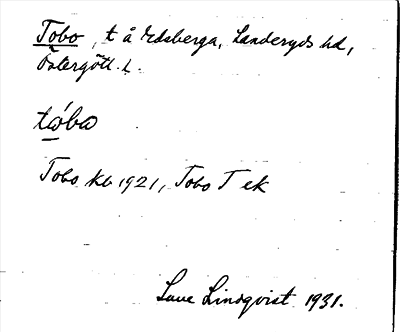 Tobo, t å Edsberga, Landeryds sd,
Östergötl. l.
tóba
Tobo kb 1921, Tobo T ek
Sune Lindqvist 1931.